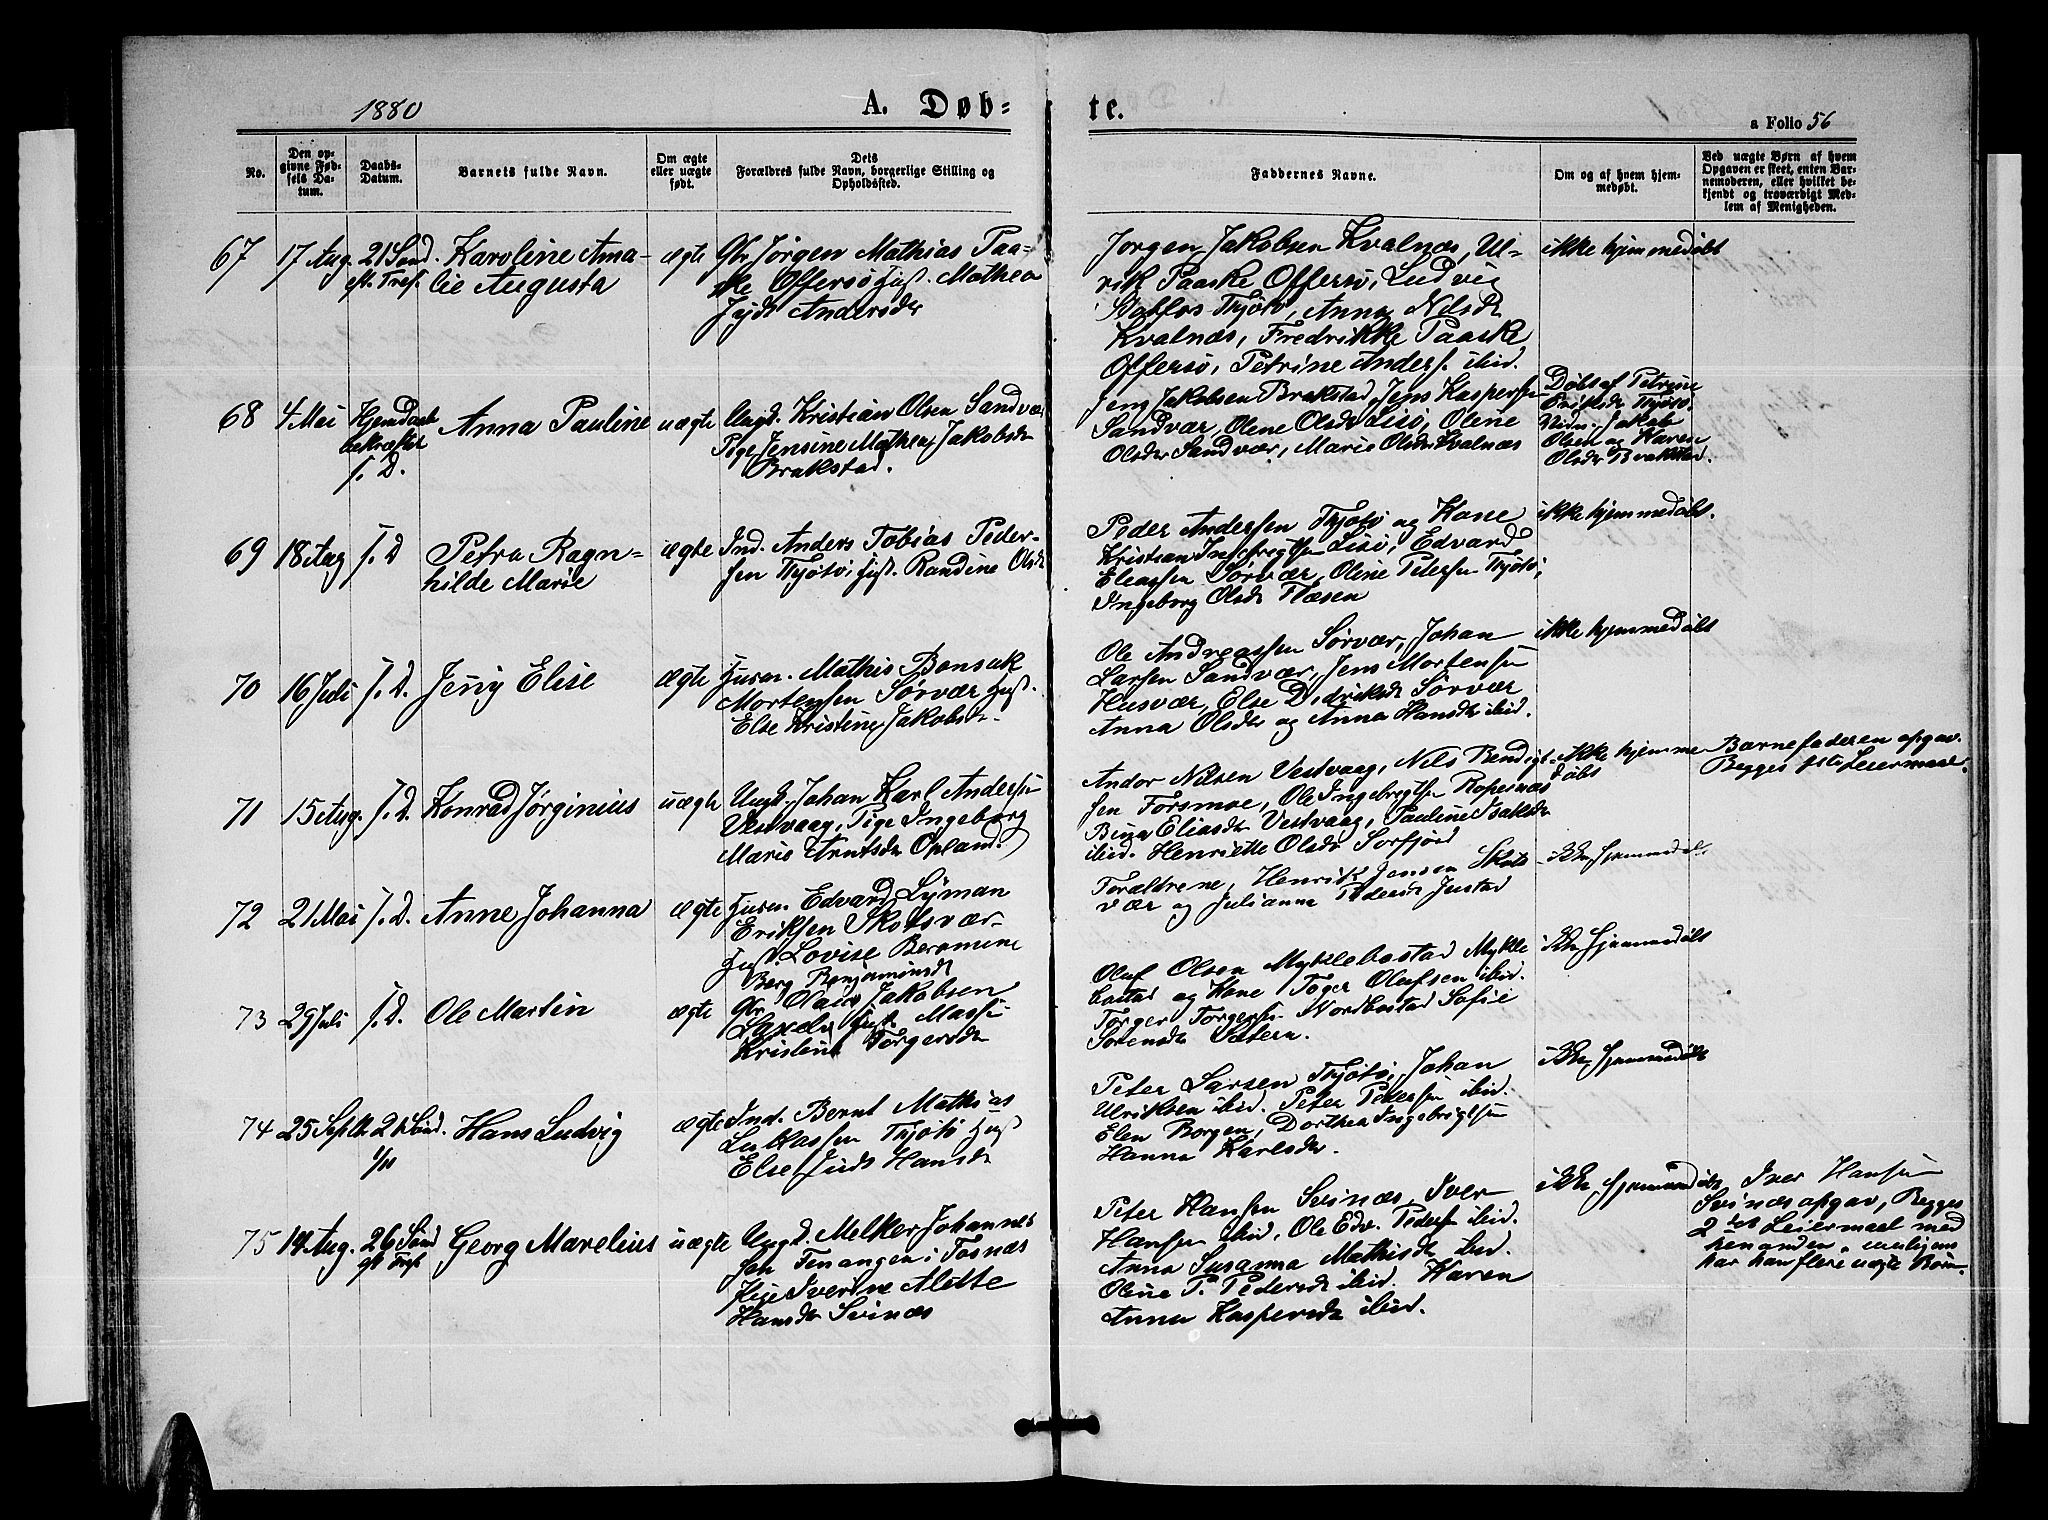 1880
A. Døb-
te.
a Folio 56
No.
Den op-
givne Fød-
sels Da-
tum.
Daabs-
Datum.
Barnets fulde Navn.
Om ægte
eller uægte
født.
Dets
Forældres fulde Navn, borgerlige Stilling og
Opholdssted.
Faddernes Navne.
Om og af hvem hjem-
medøbt.
Ved uægte Børn af hvem
Opgaven er skeet, enten Bar-
nemoderen, eller hvilket be-
kjendt og troværdigt Med-
lem af Menigheden.
67 17 Aug. 21 Sønd. Karoline Ama- ægte Gbr Jørgen Mathias Paa-
eft. Tref. lie Augusta ske Offersø, Hust. Mathea
Andersdr
Jørgen Jakobsen Kvalnæs, Ul-
rik Paaske Offersø, Ludvig
Thjøtø, Anna Nilsdr
Kvalnæs, Fredrikke Paaske
Offersø, Petrine Anders. ibid.
ikke hjemmedøbt
68 4 Mai Hjemdaab Anna Pauline uægte Ungk. Kristian Olsen Sandvær
bekræftet Pige Jensine Mathea Jakobsdr
s. D. Brakstad.
Jens Jakobsen Brakstad, Jens Kaspersen
Sandvær, Olene Olsdr Lisø, Oline
Olsdr Sandvær, Marie Olsdr Kvalnæs
Døbt af Petrine
Eriksdr Thjøtø,
Vidn. Jakob
Olsen og Karen
Olsdr Brakstad.
69 18 Aug s. D Petra Ragn- ægte Ind. Anders Tobias Peder-
hilde Marie sen Thjøtø, Hust. Randine Olsdr
Peder Andersen Thjøtø og Kone
Kristian Ingebregtsen Lisø, Edvard
Eleassen Sørvær, Oline Petersen Thjøtø,
Ingeborg Olsdr Flæsen
ikke hjemmedøbt.
70 16 Juli s. D. Jeny Elise ægte Husm. Mathis Bonsak
Mortensen Sørvær Hust.
Else Kristine Jakobsdr
Ole Andreassen Sørvær, Johan
Larsen Sandvær, Jens Mortensen
Husvær, Else Didriksdr Sørvær
Anna Olsdr og Anna Hansdr ibid.
ikke hjemmedøbt
71 15 Aug. s. D. Konrad Jørginius uægte Ungk. Johan Karl Andersen
Vestvaag, Pige Ingeborg
Marie Arntsdr Opland.
Andor Nilsen Vestvaag, Nils Bendigt-
sen Forsmoe, Ole Ingebregtsen Ropesnæs
Eliasdr Vestvaag, Pauline Isaksdr
ibid. Henriette Olsdr Sørfjord
ikke hjemme
døbt
Barnefaderen opgav.
Begges 1ste Leiermaal.
72 21 Mai s. D. Anne Johanna ægte Husm. Edvard Lyman
Eriksen Skotsvær
Hust. Lovise Bermine
Berg Benjaminsdr
Forældrene, Henrik Jensen Skots
vær og Julianna Pedersdr Justad
ikke hjemmedøbt
73 29 Juli s. D. Ole Martin ægte Gbr. Olaus Jakobsen
Hust. Massi
Kristine Torgersdr
Oluf Olsen Myklebostad Mykle
bostad og Kone Toger Olufsen ibid.
Torger Torgersen Nordbostad Sofie
Sørensdr Sætern.
ikke hjemmedøbt
74 25 Septbr 21 Sønd. Hans Ludvig ægte Ind. Bernt Mathias
1/11 Lukassen Thjøtø Hust
Else Judit Hansdr
Peter Larsen Thjøtø, Johan
Ulriksen ibid. Peter Petersen ibid.
Elen Borgen, Dorthea Ingebrigtsen
Hanna Karlsdr.
ikke hjemmedøbt
75 14 Aug. 26 Sønd Georg Marelius uægte Ungk. Melker Johannes
eft Tref. sen Finangen i Fosnæs
Pige Iverine Alette
Hansdr Svinæs
Peter Hansen Svinæs, Iver
Hansen ibid, Ole Edv. Pedersen ibid.
Anna Susanna Mathisdr ibid.
Oline P. Pedersdr ibid. Karen
Anna Kaspersdr ibid.
ikke hjemmedøbt
Iver Hansen
Svinæs opgav, Begges
2det Leiermaal med
hinanden,
har han flere uægte Børn.